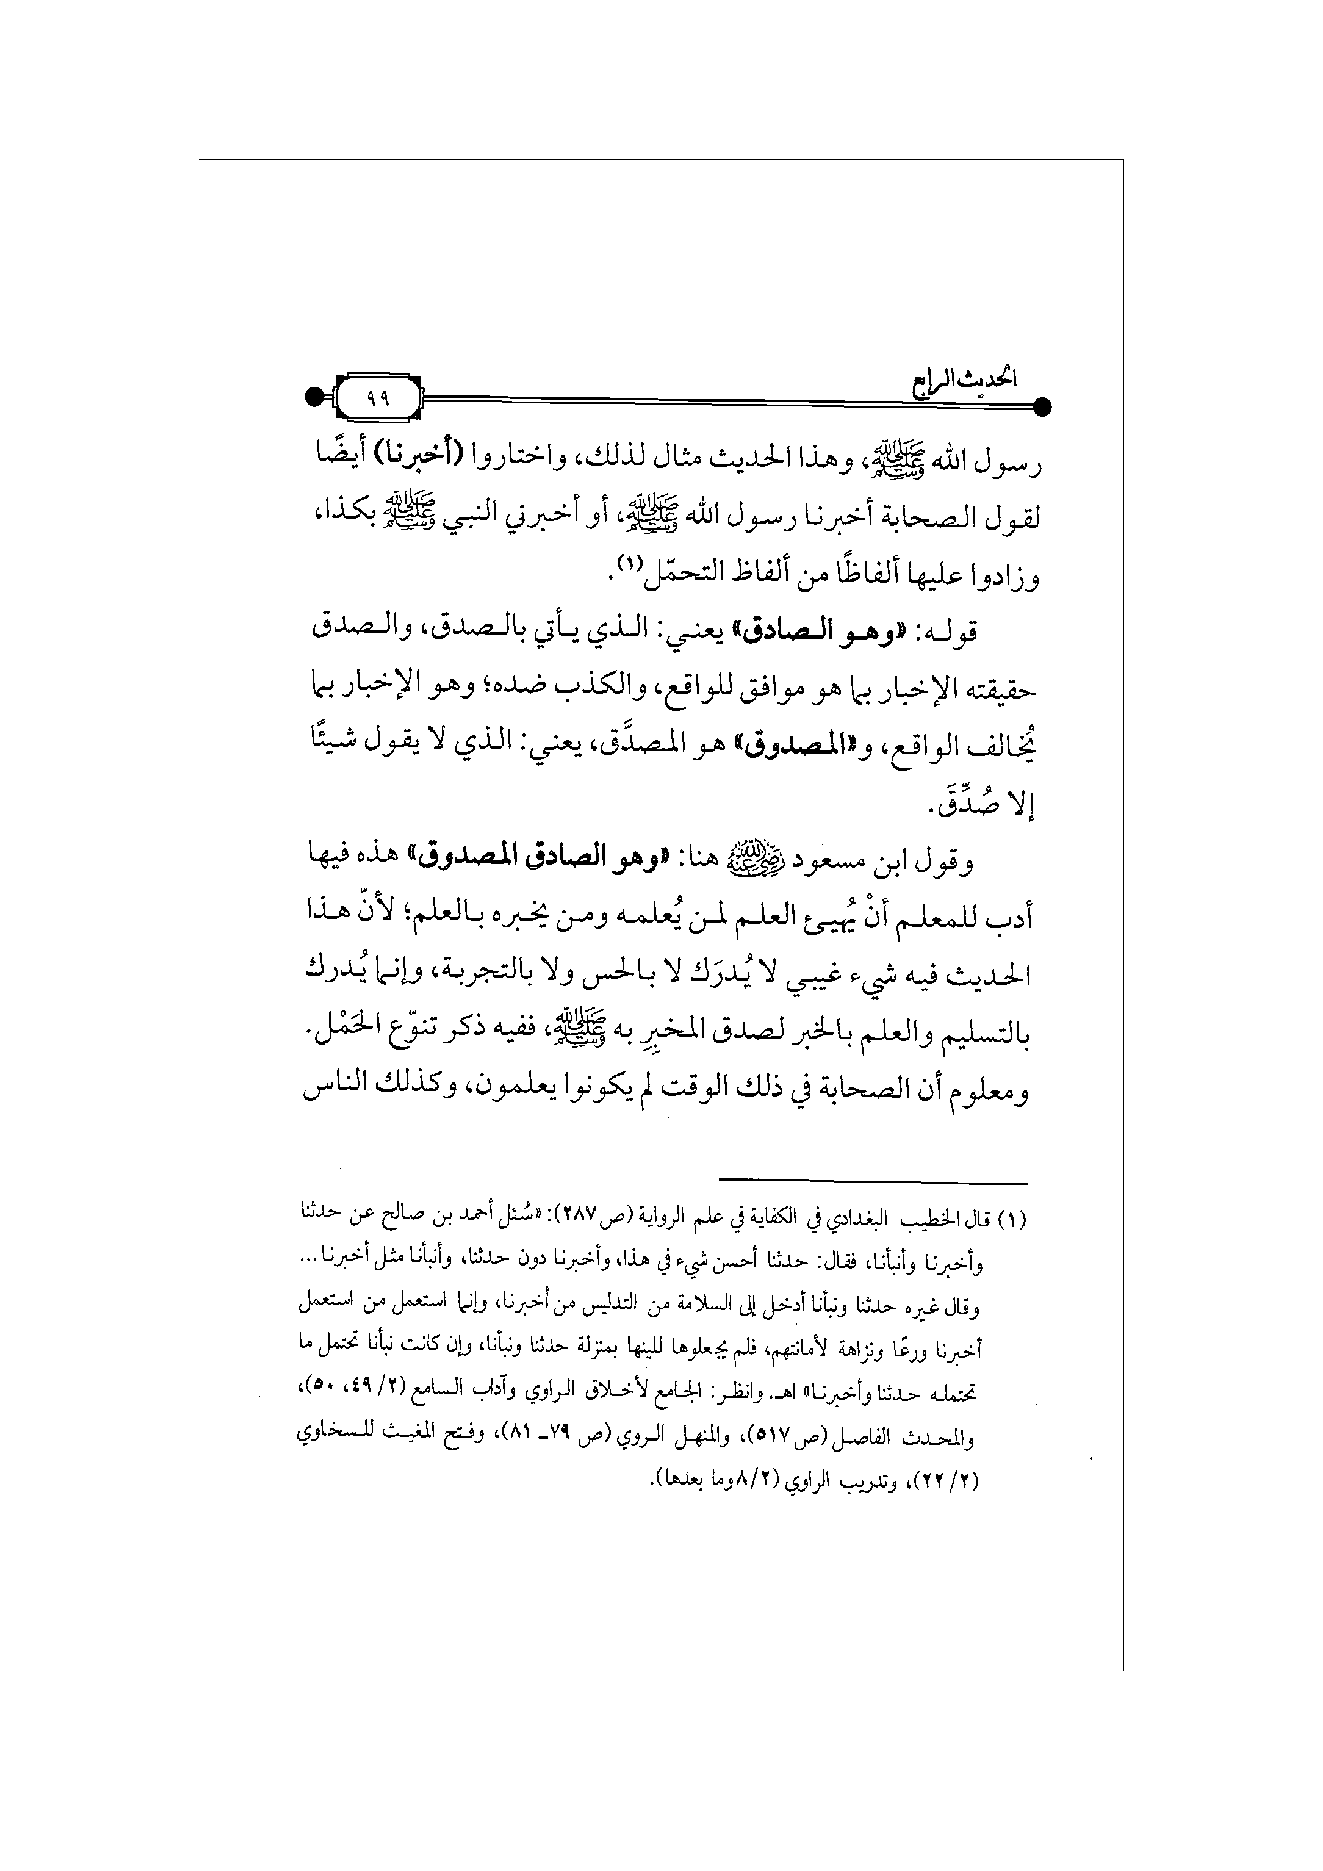 الحديث الرابع
٩٩
رسول الله ﷺ، وهذا الحديث مثال لذلك، واختاروا (أخبرنا) أيضًا
لقول الصحابة أخبرنا رسول الله ﷺ، أو أخبرني النبي ﷺ بكذا،
وزادوا عليها ألفاظًا من ألفاظ التحمّل(١).
قوله: «وهو الصادق» يعني: الذي يأتي بالصدق، والصدق
حقيقته الإخبار بما هو موافق للواقع، والكذب ضده؛ وهو الإخبار بما
يُخالف الواقع، و«المصدوق» هو المصدَّق، يعني: الذي لا يقول شيئًا
إلا صُدِّقَ.
وقول ابن مسعود رضي الله عنه هنا: «وهو الصادق المصدوق» هذه فيها
أدب للمعلم أنْ يُهيئ العلم لمن يُعلمه ومن يخبره بالعلم؛ لأنّ هذا
الحديث فيه شيء غيبي لا يُدرَك لا بالحس ولا بالتجربة، وإنما يُدرك
بالتسليم والعلم بالخبر لصدق المخبِرِ به ﷺ، ففيه ذكر تنوّع الحَمْل.
ومعلوم أن الصحابة في ذلك الوقت لم يكونوا يعلمون، وكذلك الناس
(١) قال الخطيب البغدادي في الكفاية في علم الرواية (ص٢٨٧): «سُئل أحمد بن صالح عن حدثنا
وأخبرنا وأنبأنا، فقال: حدثنا أحسن شيء في هذا، وأخبرنا دون حدثنا، وأنبأنا مثل أخبرنا...
وقال غيره حدثنا ونبأنا أدخل إلى السلامة من التدليس من أخبرنا، وإنما استعمل من استعمل
أخبرنا ورعًا ونزاهة لأمانتهم، فلم يجعلوها للينها بمنزلة حدثنا ونبأنا، وإن كانت نبأنا تحتمل ما
تحتمله حدثنا وأخبرنا» اهـ. وانظر: الجامع لأخلاق الراوي وآداب السامع (٤٩/٢، ٥٠)،
والمحدث الفاصل (ص٥١٧)، والمنهل الروي (ص ٧٩ـ ٨١)، وفتح المغيث للسخاوي
(٢٢/٢)، وتدريب الراوي (٨/٢ وما بعدها).